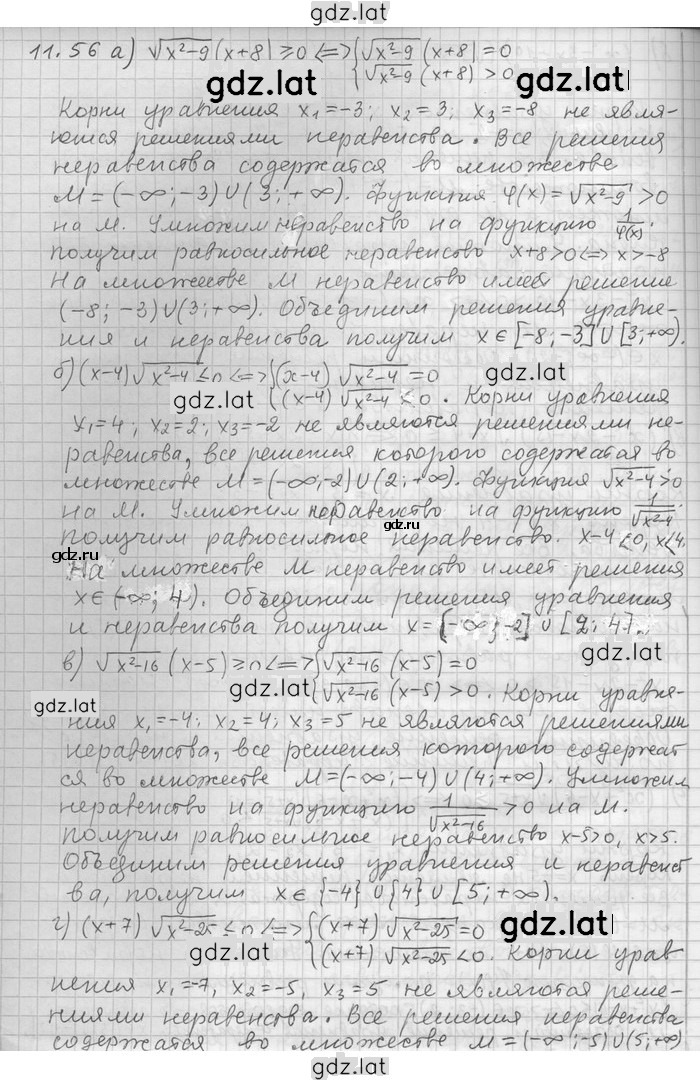 gdz.lat
11.56 а) √x²-9 (x+8) ≥0 <=> {√x²-9 (x+8) =0
{√x²-9 (x+8) >0
gdz.lat gdz.lat
Корни уравнения x₁=-3; x₂=3; x₃=-8 не явля-
ются решениями неравенства. Все решения
неравенства содержатся во множестве
M=(-∞;-3)∪(3;+∞). Функция φ(x)=√x²-9 >0
на M. Умножим неравенство на функцию 1/φ(x).
получим равносильное неравенство x+8>0<=>x>-8
На множестве M неравенство имеет решение
(-8; -3)∪(3;+∞). Объединим решения уравне-
ния и неравенства получим x∈[-8;-3]∪[3;+∞).
б) (x-4)√x²-4 ≤0 <=> {(x-4) √x²-4 =0
{(x-4) √x²-4 <0. Корни уравнения
gdz.lat gdz.lat
x₁=4; x₂=2; x₃=-2 не являются решениями не-
равенства, все решения которого содержатся во
множестве M=(-∞;-2)∪(2;+∞). Функция √x²-4>0
на M. Умножим неравенство на функцию 1/√x²-4.
получим равносильное неравенство. x-4<0, x<4.
gdz.ru gdz.ru
На множестве M неравенство имеет решения
x∈(-∞; 4). Объединим решения уравнения
и неравенства получим x=[-∞;-2]∪[2;4].
в) √x²-16 (x-5) ≥0 <=> {√x²-16 (x-5) =0
{√x²-16 (x-5) >0. Корни уравне-
gdz.lat gdz.lat
ния x₁=-4; x₂=4; x₃=5 не являются решениями
неравенства, все решения которого содержат
ся во множестве M=(-∞;-4)∪(4;+∞). Умножим
неравенство на функцию 1/√x²-16 >0 на M.
получим равносильное неравенство x-5>0, x>5.
Объединим решения уравнения и неравенст
ва, получим x∈{-4}∪{4}∪[5;+∞).
г) (x+7) √x²-25 ≤0 <=> {(x+7) √x²-25 =0
{(x+7) √x²-25 <0. Корни урав
gdz.lat gdz.lat
нения x₁=-7, x₂=-5, x₃=5 не являются реше-
ниями неравенства. Все решения неравенства
содержатся во множестве M=(-∞;-5)∪(5;+∞)
gdz.lat